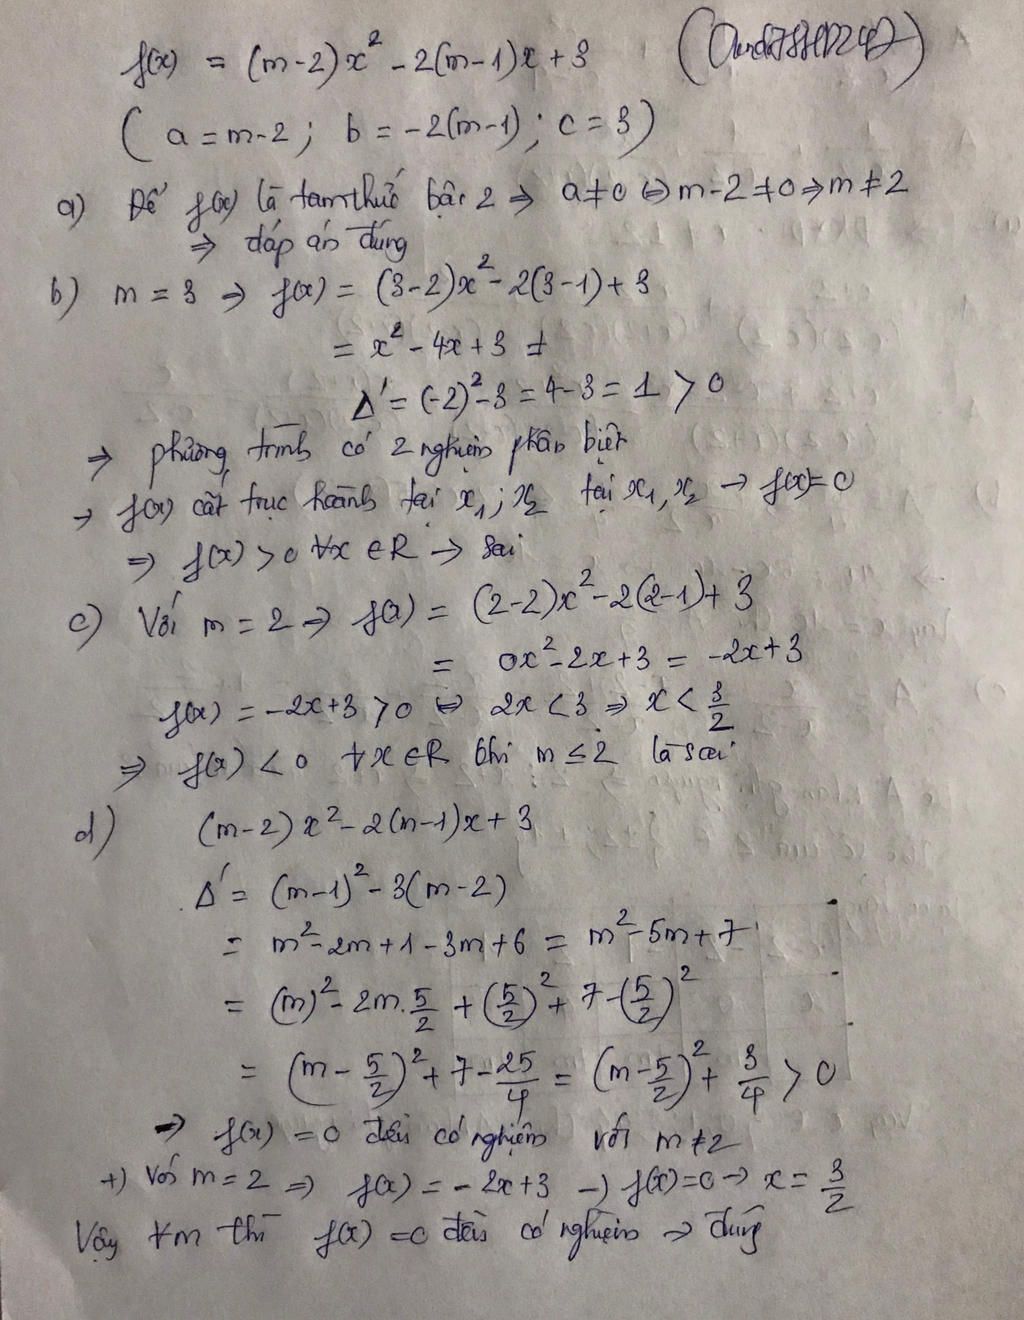 f(x) = (m-2)x² - 2(m-1)x + 3
( a = m-2 ; b = -2(m-1) ; c = 3 )
a) Để f(x) là tam thức bậc 2 ⇒ a ≠ 0 ⇔ m-2 ≠ 0 ⇒ m ≠ 2
⇒ đáp án đúng
b) m = 3 ⇒ f(x) = (3-2)x² - 2(3-1) + 3
= x² - 4x + 3
Δ' = (-2)² - 3 = 4 - 3 = 1 > 0
⇒ phương trình có 2 nghiệm phân biệt
→ f(x) cắt trục hoành tại x₁ ; x₂ tại x₁, x₂ → f(x) = 0
⇒ f(x) > 0 ∀x ∈ R → sai
c) Với m = 2 ⇒ f(x) = (2-2)x² - 2(2-1) + 3
= 0x² - 2x + 3 = -2x + 3
f(x) = -2x + 3 > 0 ⇔ 2x < 3 ⇒ x < 3/2
⇒ f(x) < 0 ∀x ∈ R khi m ≤ 2 là sai
d) (m-2)x² - 2(m-1)x + 3
Δ' = (m-1)² - 3(m-2)
= m² - 2m + 1 - 3m + 6 = m² - 5m + 7
= (m)² - 2m.5/2 + (5/2)² + 7 - (5/2)²
= (m - 5/2)² + 7 - 25/4 = (m - 5/2)² + 3/4 > 0
→ f(x) = 0 đều có nghiệm với m ≠ 2
+) Với m = 2 ⇒ f(x) = -2x + 3 → f(x) = 0 → x = 3/2
Vậy ∀m thì f(x) = 0 đều có nghiệm → đúng